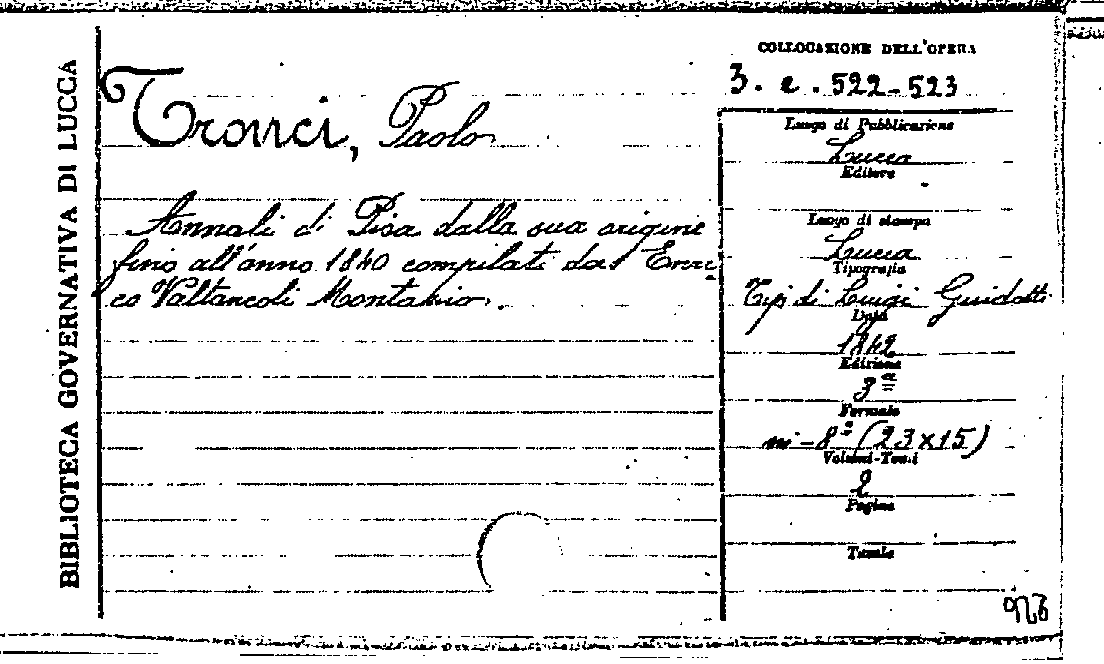 BIBLIOTECA GOVERNATIVA DI LUCCA
Tronci, Paolo
Annali di Pisa dalla sua origine
fino all'anno 1840 compilati dal Enri
co Valtancoli Montazio.
COLLOCAZIONE DELL'OPERA
3. e. 522-523
Luogo di Pubblicazione
Lucca
Editore
Luogo di stampa
Lucca
Tipografia
Tip. di Luigi Guidotti
Data
1842
Edizione
3ª
Formato
in-8° (23x15)
Volumi-Tomi
2
Pagine
Tavole